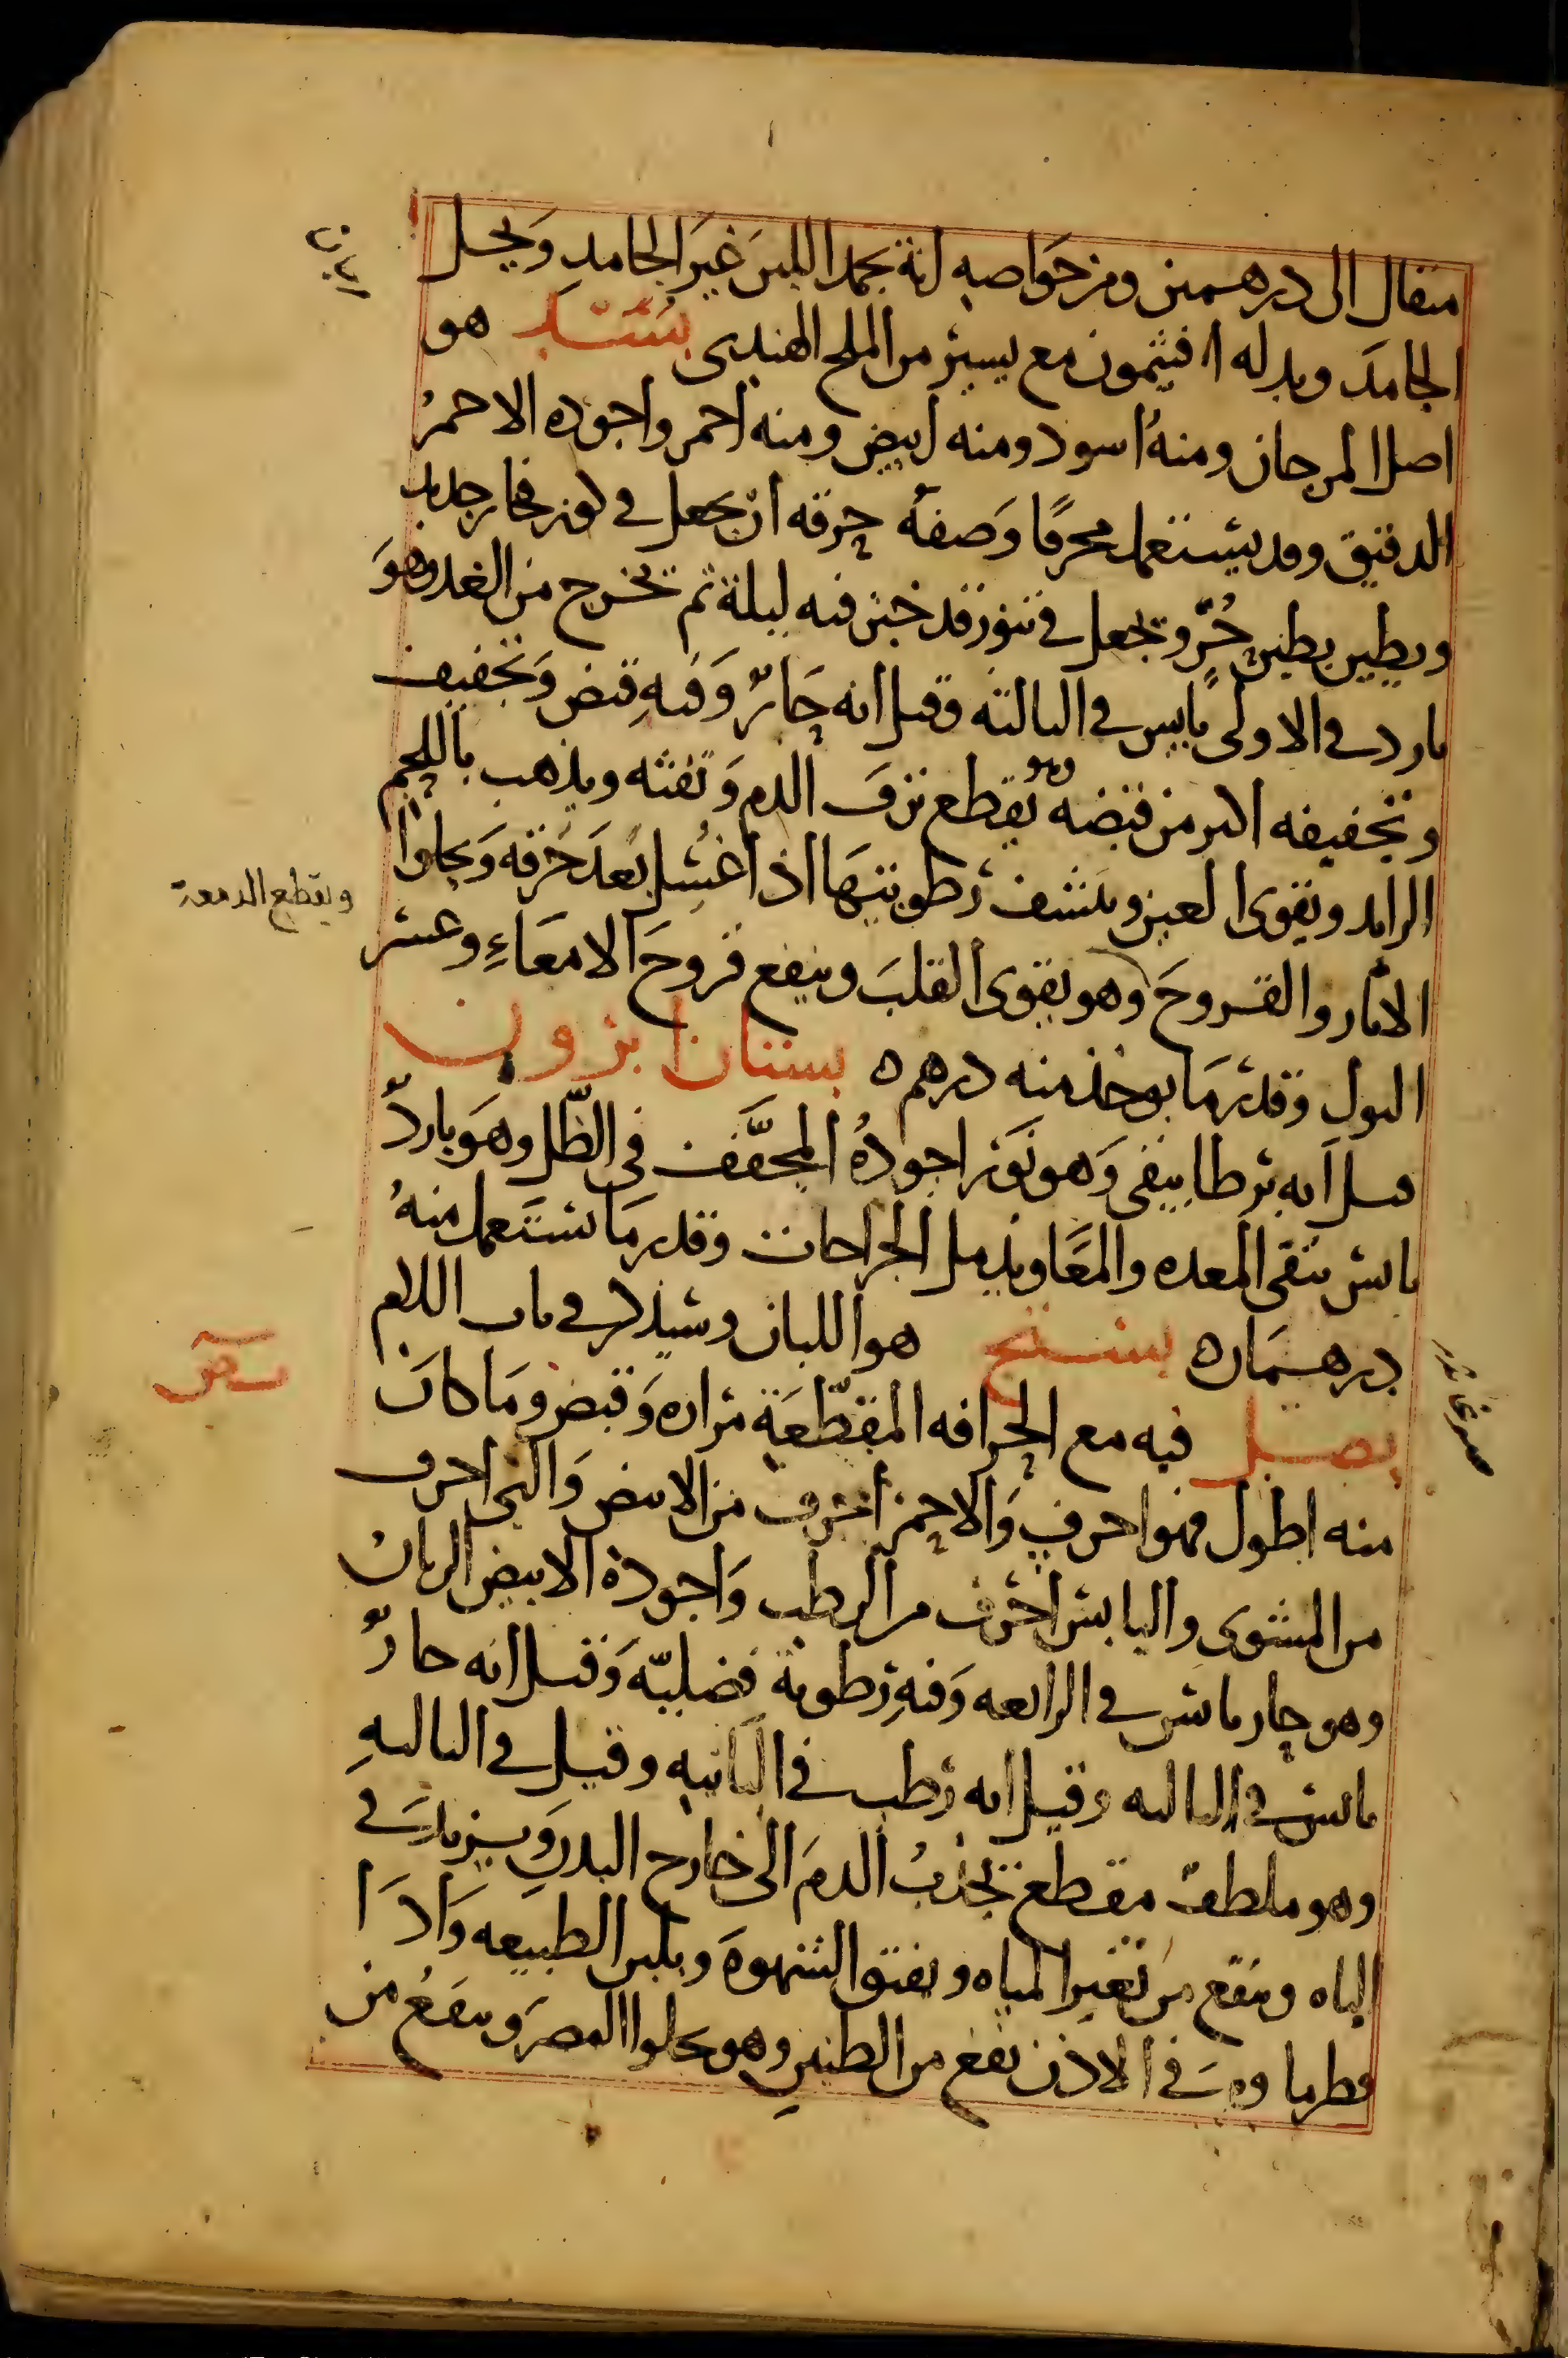 مثقال الى درهمين ومن خواصه انه يجمد اللبن غير الجامد ويحل
الجامد وبدله افيثمون مع يسير من الملح الهندى بسد هو
اصل المرجان ومنه اسود ومنه ابيض ومنه احمر واجوده الاحمر
الدقيق وقد يستعمل محرقا وصفة حرقه ان يجعل في كوز فخار جديد
ويطين بطين حر ويجعل في تنور قد خبز فيه ليلة ثم يخرج من الغد وهو
بارد في الاولى يابس في الثالثة وقيل انه حار وفيه قبض وتجفيف
وتجفيفه اكثر من قبضه وهو يقطع نزف الدم ونفثه ويذهب باللحم
الزايد ويقوى العين وينشف رطوبتها اذا غسل بعد حرقه ويجلوا
ويقطع الدمعة
الاثار والقروح وهو يقوى القلب وينفع قروح الامعاء وعسر
البول وقدر ما يوخذ منه درهم ه بستان ابزون
قيل انه برطانيقى وهو نور اجوده المجفف في الظل وهو بارد
يابس ينقى المعده والمعا ويدمل الجراحات وقدر ما يستعمل منه
درهمان ه بستنج هو اللبان وسيذكر في باب اللام
بصل فيه مع الحرافه المقطعة مراره وقبض وما كان
منه اطول فهو احرف والاحمر احرف من الابيض والنى احرف
من المشوى واليابس احرف من الرطب واجوده الابيض الريان
وهو حار يابس في الرابعه وفيه رطوبة فضلية وقيل انه حار
يابس في الثالثه وقيل انه رطب في الثانيه وقيل في الثالثه
وهو ملطف مقطع يجذب الدم الى خارج البدن ويزيد في
الباه وينفع من تغير المياه ويفتق الشهوة ويلين الطبيعه واذا
قطر ماوه في الاذن نفع من الطنين وهو يجلوا البصر وينفع من